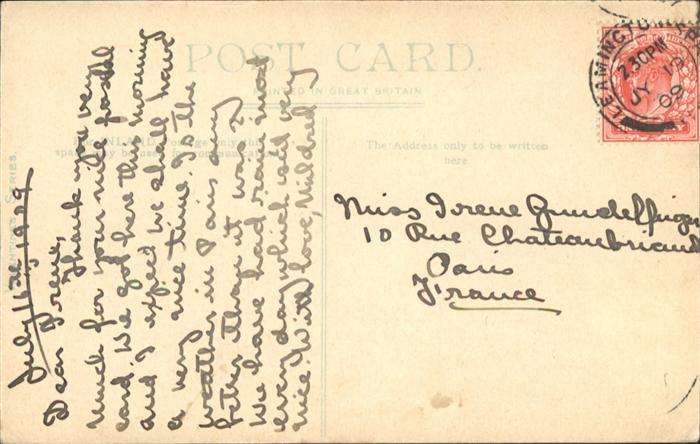 POST CARD.
PRINTED IN GREAT BRITAIN
The Address only to be written
here
LEAMINGTON
7.30PM
JY
09
July 1909
Dear Irene,
Thank you very
much for your nice postal
card. We got here this morning
and I expect we shall have
a very nice time. Is the
weather in Paris any
better than it was, so
We have had rain most
every day which isn't very
nice. With love, Mildred
Miss Irene
10 Rue Chateaubriand
Paris
France